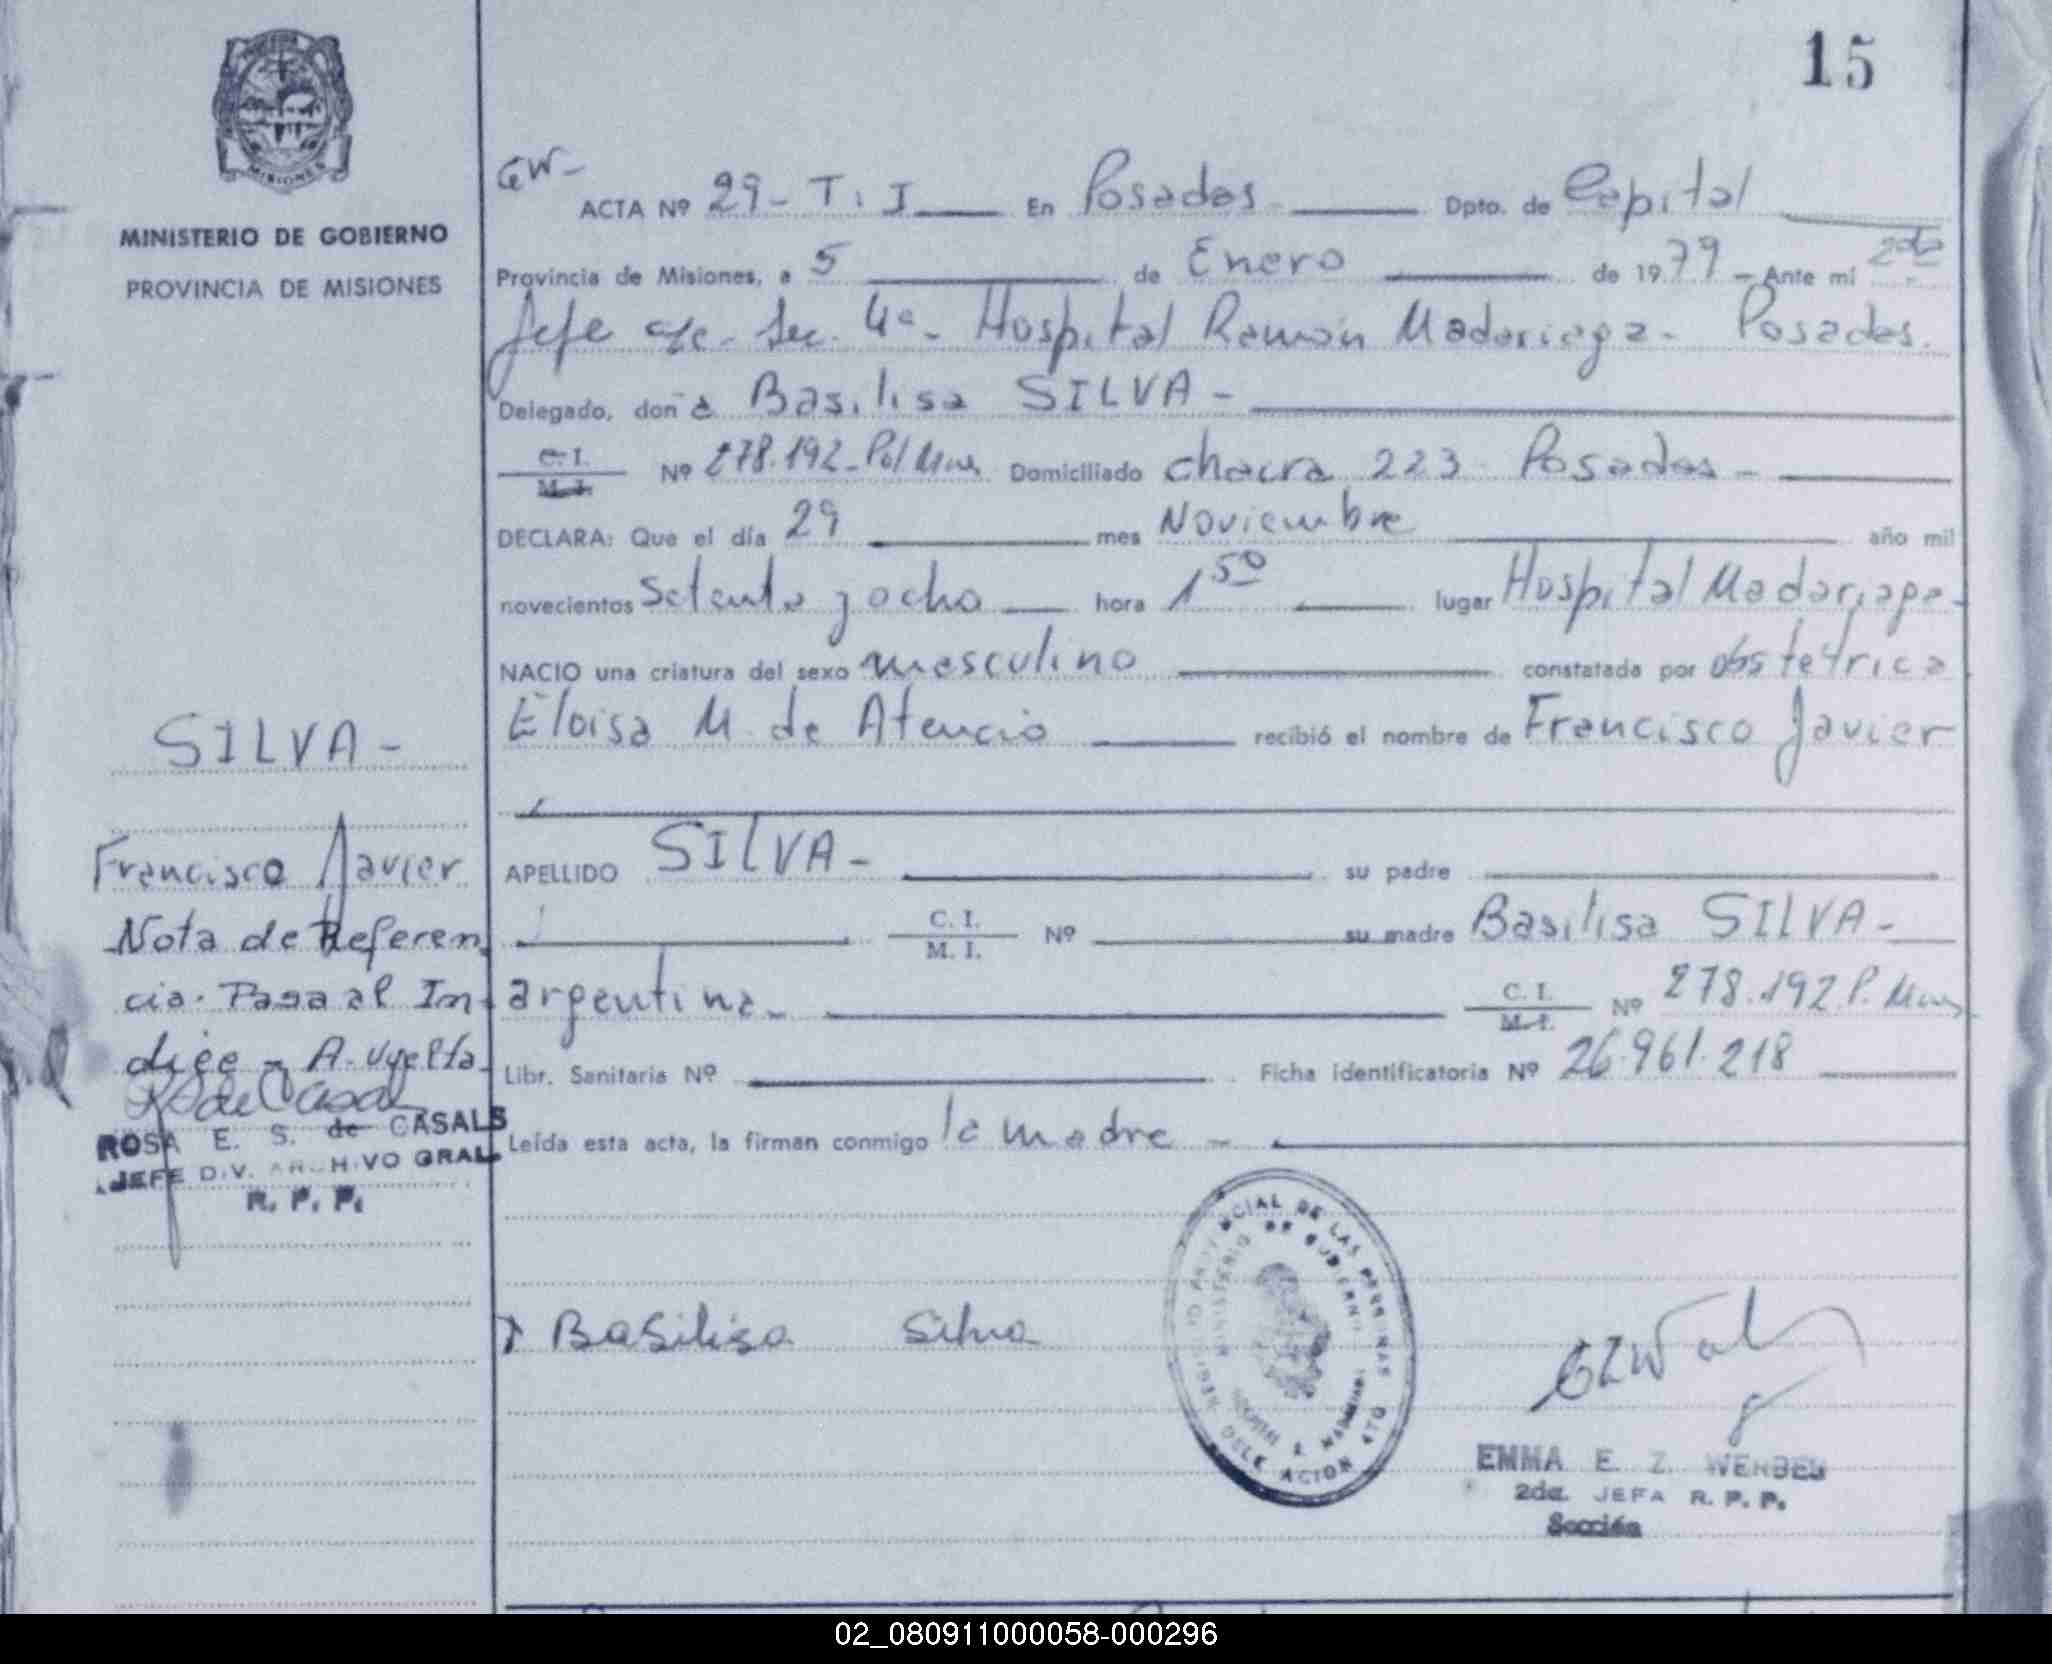 15
MISIONES
MINISTERIO DE GOBIERNO
PROVINCIA DE MISIONES
GW-
ACTA Nº 29-T.I En Posadas Dpto. de Capital
Provincia de Misiones, a 5 de Enero de 1979 - Ante mi 2da
Jefe Sec. 4a- Hospital Ramón Madariaga- Posadas.
Delegado, doña Basilisa SILVA-
C. I.
M. I.
Nº 278.192-Pol Mnes Domiciliado chacra 223 Posadas-
DECLARA: Que el día 29 mes Noviembre año mil
novecientos setenta y ocho hora 1 50 lugar Hospital Madariaga-
NACIO una criatura del sexo masculino constatada por obstetrica
Eloisa M. de Atencio recibió el nombre de Francisco Javier
APELLIDO SILVA- su padre
C. I.
M. I.
Nº su madre Basilisa SILVA-
argentina- C. I.
M. I.
Nº 278.192 P. Mnes
Libr. Sanitaria Nº Ficha identificatoria Nº 26.961.218
Leída esta acta, la firman conmigo la madre -
SILVA-
Francisco Javier
Nota de Referen
cia. Pasa al In-
dice - A. Vuelta
ROSA E. S. de CASALS
JEFE DIV. ARCHIVO GRAL.
R. P. P.
Basilisa Silva
REGISTRO PROVINCIAL DE LAS PERSONAS
MINISTERIO DE GOBIERNO
DELEGACION 4TO
EMMA E. Z. WERBEL
2da. JEFA R. P. P.
Sección
02_080911000058-000296